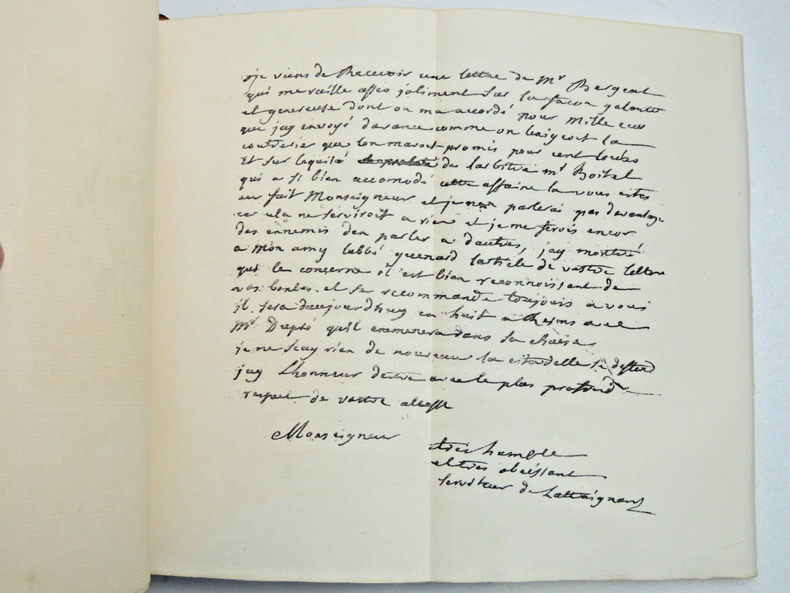 je viens de Recevoir une lettre de Mr Bergeat
qui me raille asses joliment sur la façon galante
et genereuse dont on ma accordé pour mille ecus
que jay envoyé davance comme on exigeoit la
que lon mavoit promis pour cent louis
Et sur lequité de larbitre mr Boitel
qui a si bien accomodé cette affaire la vous estes
au fait Monseigneur et je nen parlerai pas davantage
car cela ne serviroit a rien et je me ferois encor
des ennemis den parler a dautres, jay montré
a mon amy labbé guenard larticle de vostre lettre
qui le concerne il est bien reconnoissant de
vos bontes et se recommande toujours a vous
il sera daujourdhuy en huit a Rheims avec
Mr Dupré quil emmenera dans sa chaise
je ne scay rien de nouveau la citadelle se deffend
jay Lhonneur destre avec le plus profond
respect de vostre altesse
Monseigneur
tres humble
et tres obeissant
serviteur de Lattaignant